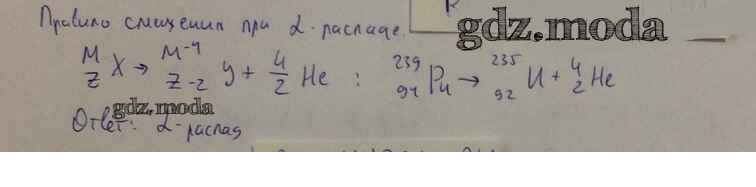 Правило смещения при α-распаде.
gdz.moda
M/Z X → M-4/Z-2 Y + 4/2 He : 239/94 Pu → 235/92 U + 4/2 He
gdz.moda
Ответ: α-распад